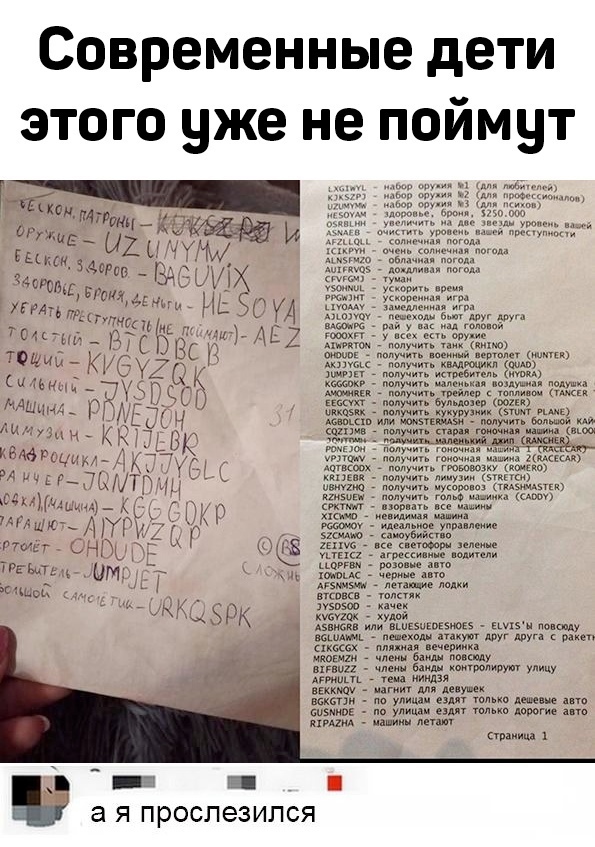 Современные дети
этого уже не поймут
БЕСКОН. ПАТРОНЫ –
ОРУЖИЕ – UZUMYMW
БЕСКОН. ЗДОРОВ. – BAGUVIX
ЗДОРОВЬЕ, БРОНЯ, ДЕНЬГИ – HESOYA
УБРАТЬ ПРЕСТУПНОСТЬ (НЕ ПОЙМАЮТ) – AEZ
ТОЛСТЫЙ – BTCDBCB
ТОЩИЙ – KVGYZQK
СИЛЬНЫЙ – JYSDSOD
МАШИНА – PDNEJOH
ЛИМУЗИН – KRIJEBR
КВАДРОЦИКЛ – AKJJYGLC
РАНЧЕР – JQNTDMH
ОДКА), (МАШИНА) – KGGGDKP
ПАРАШЮТ – AIYPWZQP
ЕРТОЛЁТ – OHDUDE
ТРЕБИТЕЛЬ – JUMPJET
БОЛЬШОЙ САМОЛЁТИК – URKQSPK
31
СЛОЖНЫ
LXGIWYL – набор оружия №1 (для любителей)
KJKSZPJ – набор оружия №2 (для профессионалов)
UZUMYMW – набор оружия №3 (для психов)
HESOYAM – здоровье, броня, $250.000
OSRBLHH – увеличить на две звезды уровень вашей
ASNAEB – очистить уровень вашей преступности
AFZLLQLL – солнечная погода
ICIKPYH – очень солнечная погода
ALNSFMZO – облачная погода
AUIFRVQS – дождливая погода
CFVFGMJ – туман
YSOHNUL – ускорить время
PPGWJHT – ускоренная игра
LIYOAAY – замедленная игра
AJLOJYQY – пешеходы бьют друг друга
BAGOWPG – рай у вас над головой
FOOOXFT – у всех есть оружие
AIWPRTON – получить танк (RHINO)
OHDUDE – получить военный вертолет (HUNTER)
AKJJYGLC – получить КВАДРОЦИКЛ (QUAD)
JUMPJET – получить истребитель (HYDRA)
KGGGDKP – получить маленькая воздушная подушка
AMOMHRER – получить трейлер с топливом (TANCER
EEGCYXT – получить бульдозер (DOZER)
URKQSRK – получить кукурузник (STUNT PLANE)
AGBDLCID ИЛИ MONSTERMASH – получить большой кай
CQZIJMB – получить старая гоночная машина (BLOO
JQNTDMH – получить маленький джип (RANCHER)
PDNEJOH – получить гоночная машина 1 (RACECAR)
VPJTQWV – получить гоночная машина 2(RACECAR)
AQTBCODX – получить ГРОБОВОЗКУ (ROMERO)
KRIJEBR – получить лимузин (STRETCH)
UBHYZHQ – получить мусоровоз (TRASHMASTER)
RZHSUEW – получить гольф машинка (CADDY)
CPKTNWT – взорвать все машины
XICWMD – невидимая машина
PGGOMOY – идеальное управление
SZCMAWO – самоубийство
ZEIIVG – все светофоры зеленые
YLTEICZ – агрессивные водители
LLQPFBN – розовые авто
IOWDLAC – черные авто
AFSNMSMW – летающие лодки
BTCDBCB – толстяк
JYSDSOD – качек
KVGYZQK – худой
ASBHGRB или BLUESUEDESHOES – ELVIS'ы повсюду
BGLUAWML – пешеходы атакуют друг друга с ракетн
CIKGCGX – пляжная вечеринка
MROEMZH – члены банды повсюду
BIFBUZZ – члены банды контролируют улицу
AFPHULTL – тема НИНДЗЯ
BEKKNQV – магнит для девушек
BGKGTJH – по улицам ездят только дешевые авто
GUSNHDE – по улицам ездят только дорогие авто
RIPAZHA – машины летают
Страница 1
а я прослезился